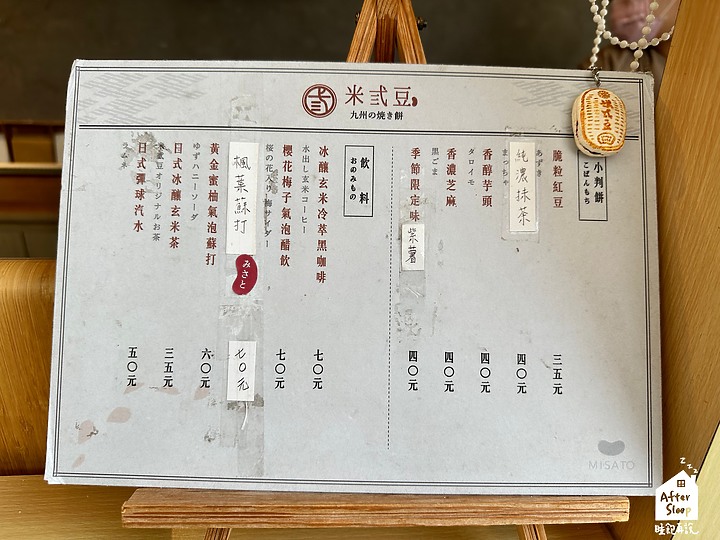 米弎豆
九州の焼き餅
小判餅
こばんもち
脆粒紅豆
あずき
三五元
純濃抹茶
まっちゃ
四〇元
香醇芋頭
タロイモ
四〇元
香濃芝麻
黒ごま
四〇元
季節限定味 紫薯
四〇元
飲料
おのみもの
冰釀玄米冷萃黑咖啡
水出し玄米コーヒー
七〇元
櫻花梅子氣泡醋飲
桜の花入り梅サイダー
七〇元
楓葉蘇打
みさと
七〇元
黃金蜜柚氣泡蘇打
ゆずハニーソーダ
六〇元
日式冰釀玄米茶
米弎豆オリジナルお茶
三五元
日式彈球汽水
ラムネ
五〇元
MISATO
米弎豆
After
Sleep
睡飽再說